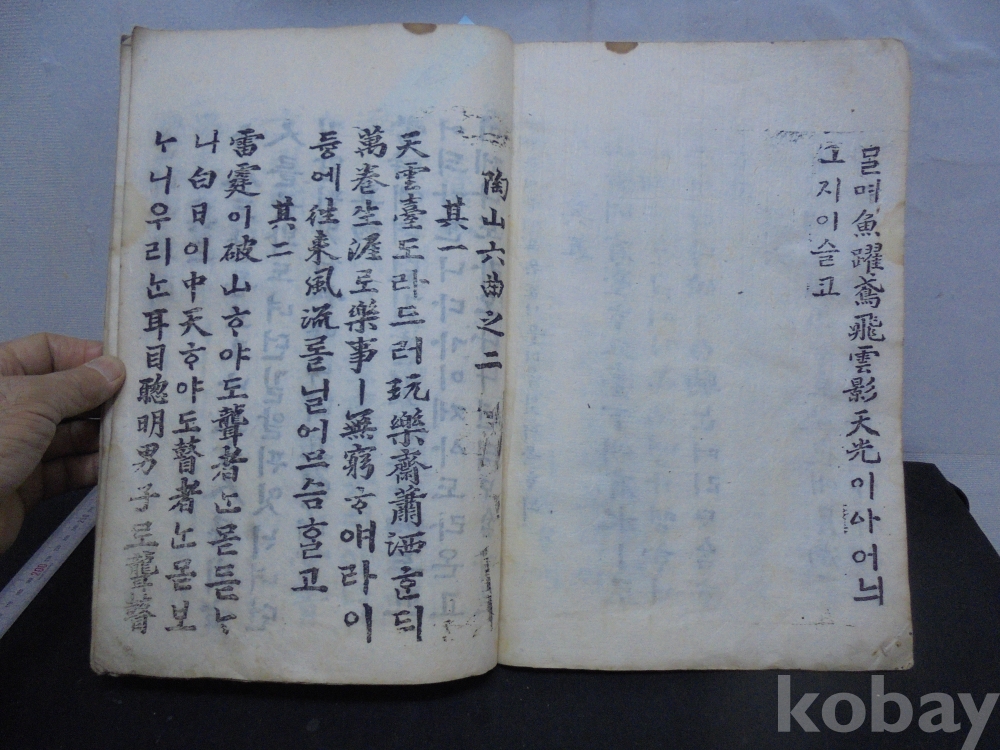 믈며魚躍鳶飛雲影天光이아어늬
그지이슬고
陶山六曲之二
其一
天雲臺도라드러玩樂齋蕭洒ᄒᆞᆫᄃᆡ
萬卷生涯로樂事ㅣ無窮ᄒᆞ얘라이
듕에往來風流ᄅᆞᆯ닐어므슴ᄒᆞᆯ고
其二
雷霆이破山ᄒᆞ야도聾者ᄂᆞᆫ몯듣ᄂᆞ
니白日이中天ᄒᆞ야도瞽者ᄂᆞᆫ몯보
ᄂᆞ니우리ᄂᆞᆫ耳目聰明男子로聾瞽
kobay